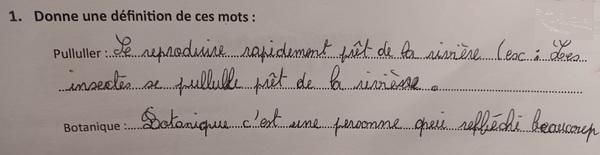 1. Donne une définition de ces mots :
Pulluller : Se reproduire rapidement prêt de la rivière (esc : Les
insectes se pullulle prêt de la rivière.
Botanique : Botanique c'est une personne qeui refléchi beaucoup